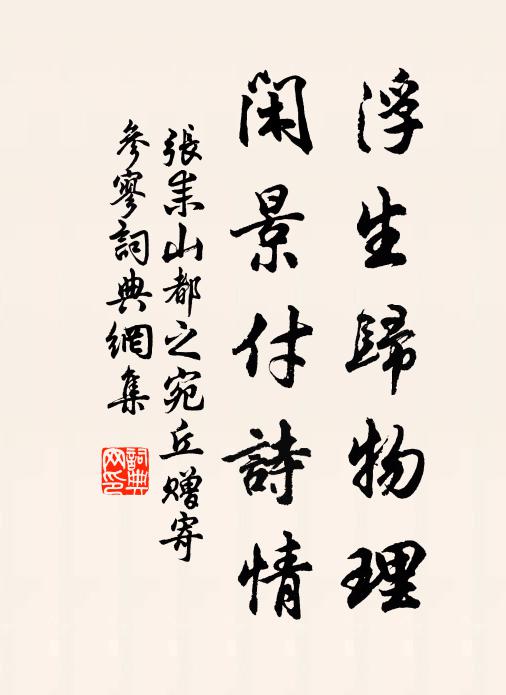 浮生歸物理
閑景付詩情
張耒山都之宛丘贈寄
參寥詞典網集
詞典网印